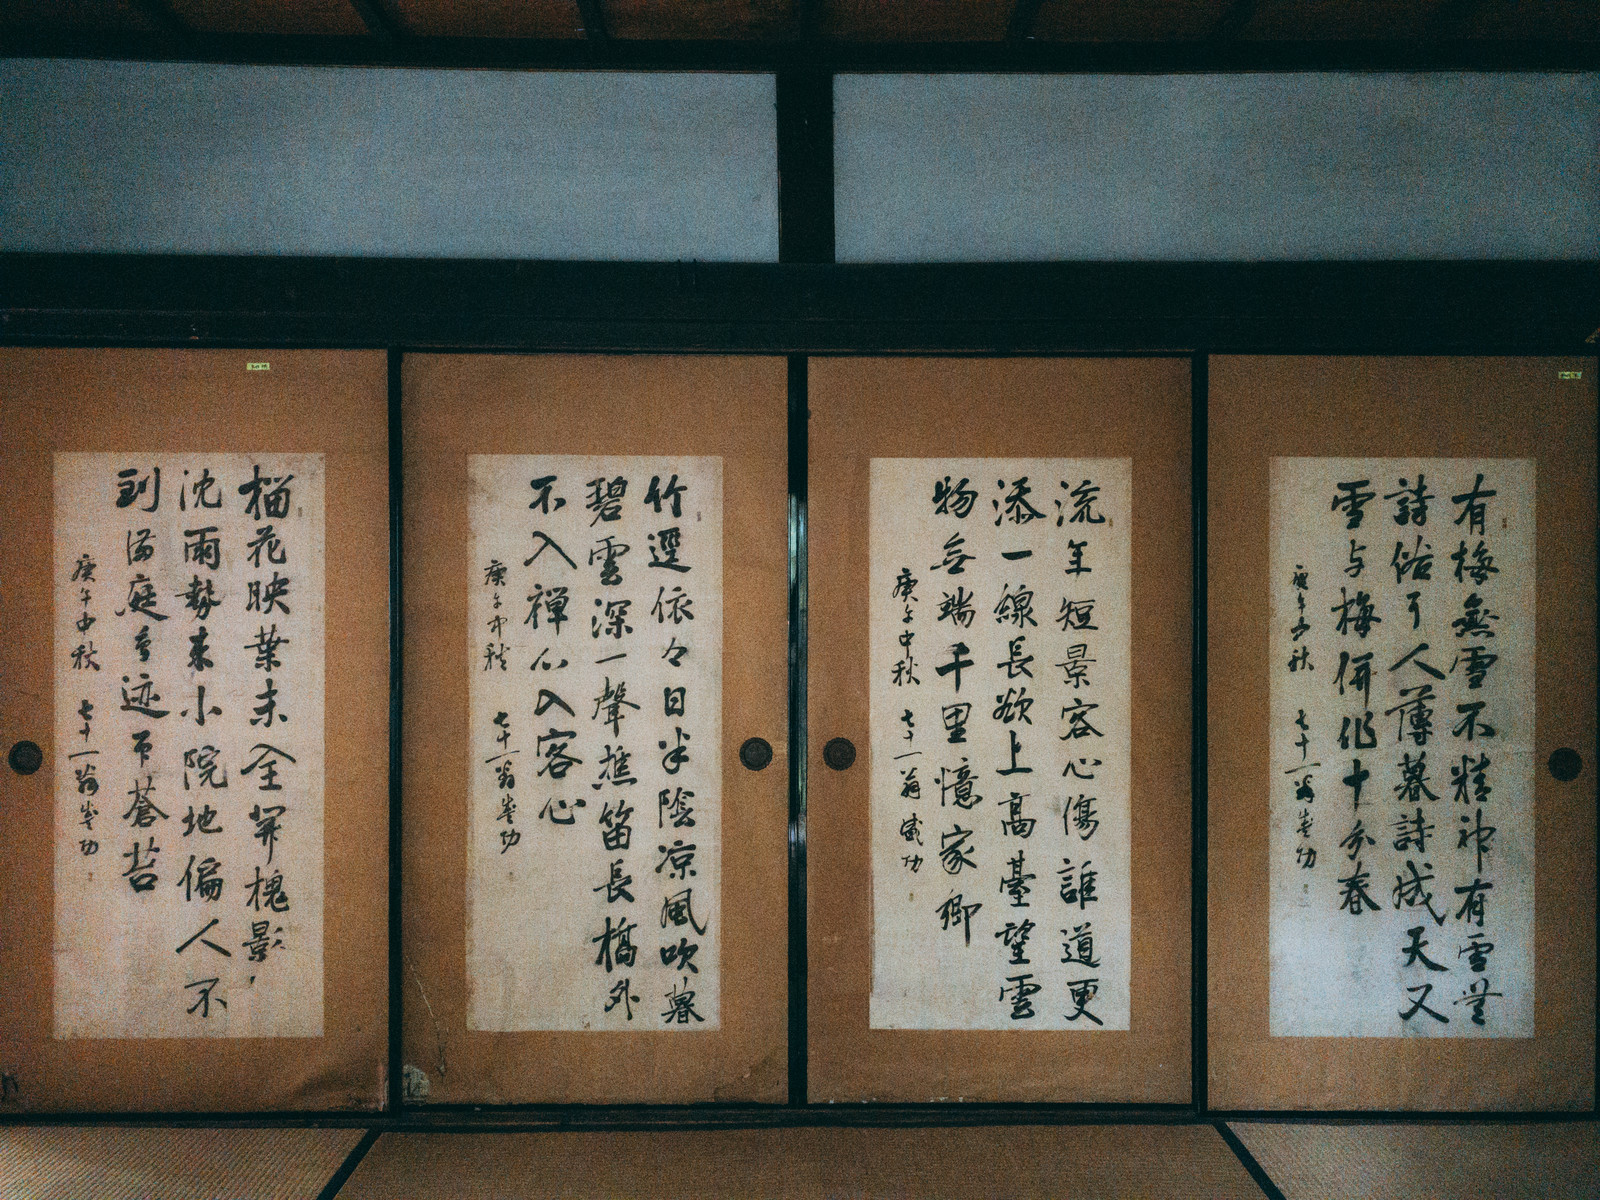 有梅無雪不精神有雪無
詩俗了人薄暮詩成天又
雪与梅併作十分春
庚午中秋 七十一翁
流年短景客心傷誰道更
添一線長欲上高臺望雲
物無端千里憶家郷
庚午中秋 七十一翁
竹邐依々日半陰凉風吹暮
碧雲深一聲樵笛長橋外
不入禅心入客心
庚午中秋 七十一翁
榴花映葉未全開槐影
沈雨勢来小院地偏人不
到満庭鳥迹印蒼苔
庚午中秋 七十一翁